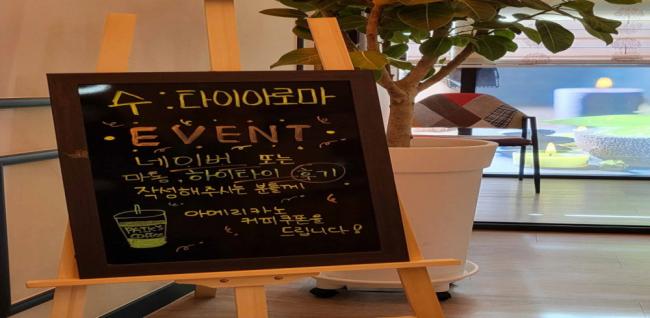 수 타이아로마
EVENT
네이버 또는
마통 하이타이 후기
작성해주시는 분들께
아메리카노
커피쿠폰을
드립니다
PAIK'S
COFFEE